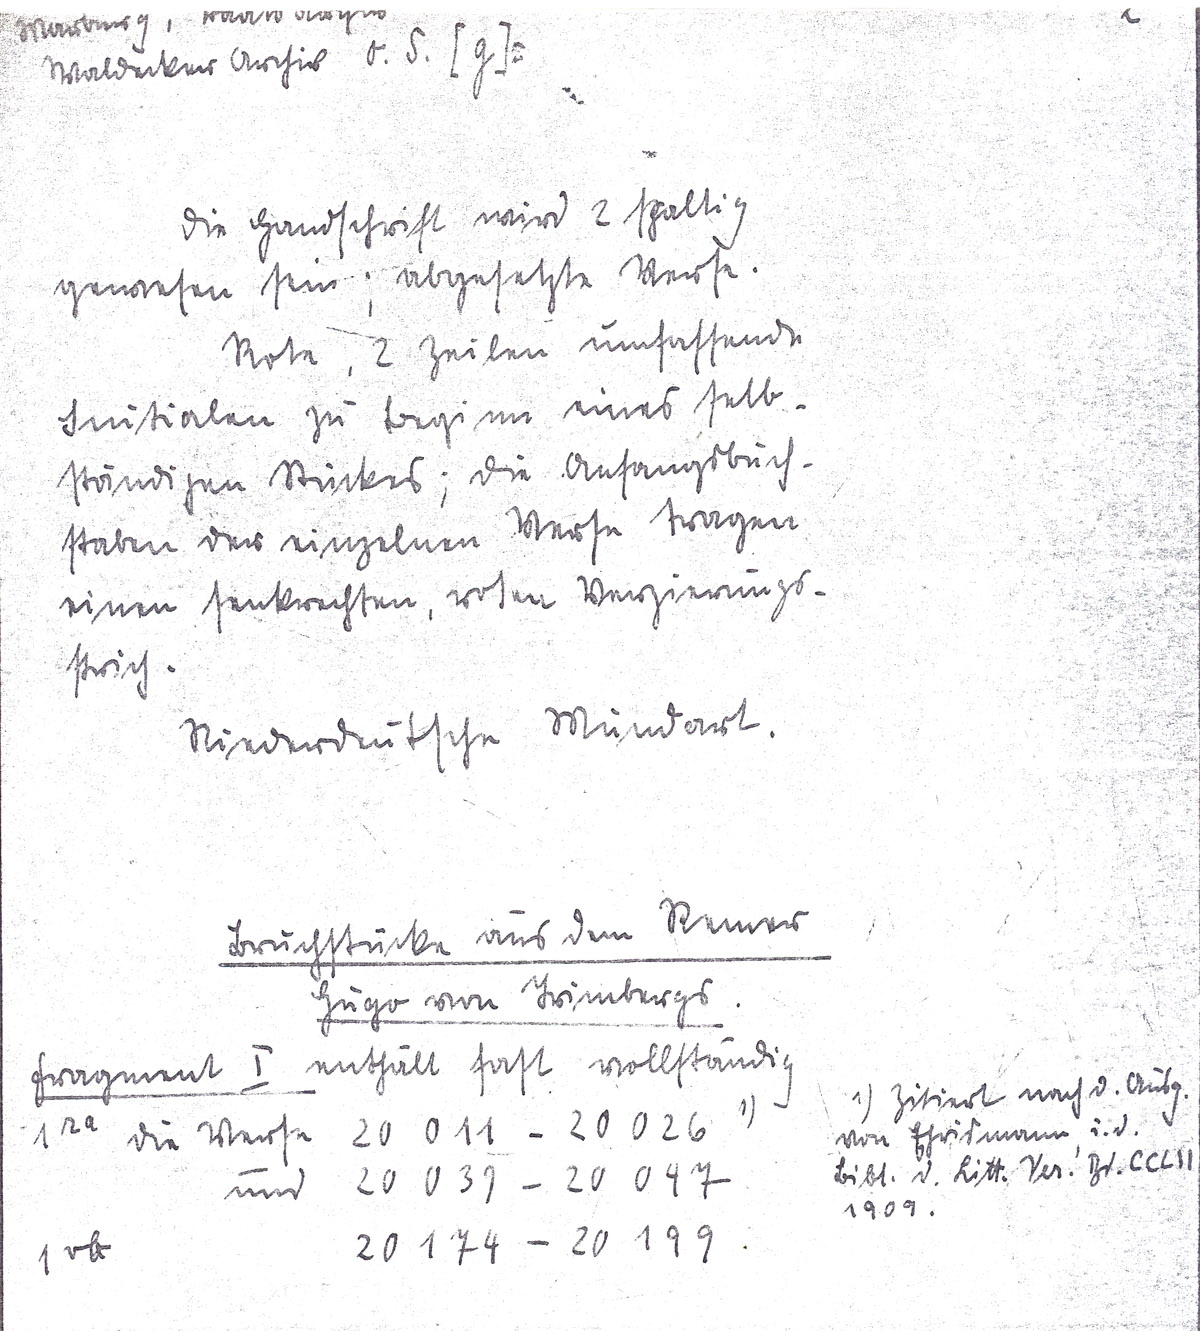 Marburg, Staatsarchiv
2
Waldecker Archiv o. S. [9]:
Die Handschrift wird 2 spaltig
gewesen sein; abgesetzte Verse.
Rote, 2 Zeilen umfassende
Initialen zu Beginn eines selb-
ständigen Stückes; die Anfangsbuch-
staben der einzelnen Verse tragen
einen senkrechten, roten Verzierungs-
strich.
Niederdeutsche Mundart.
Bruchstücke aus dem Renner
Hugo von Trimbergs.
Fragment I enthält fast vollständig
1ra die Verse 20 011 - 20 026 1)
und 20 039 - 20 047
1rb 20 174 - 20 199.
1) Zitiert nach d. Ausg.
von Ehrismann i. d.
Bibl. d. Litt. Ver. Bd. CCLII
1909.